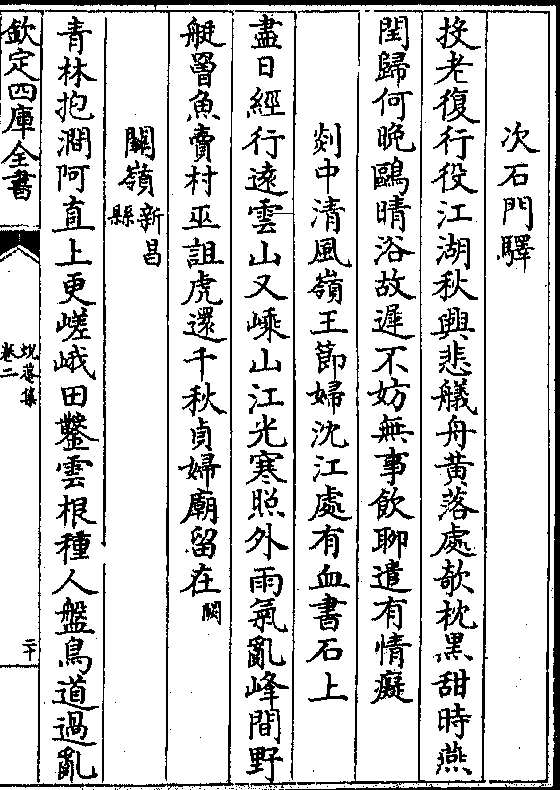 次石門驛
投老復行役江湖秋興悲艤舟黃落處欹枕黑甜時燕
閏歸何晩鷗晴浴故遲不妨無事飲聊遣有情癡
剡中清風嶺王節婦沈江處有血書石上
盡日經行遠雲山又嵊山江光寒照外雨氣亂峰間野
艇罾魚賣村巫詛虎還千秋貞婦廟留在闕
關嶺新昌縣
青林抱澗阿直上更嵯峨田鑿雲根種人盤鳥道過亂
欽定四庫全書
蛻菴集
卷二
二十